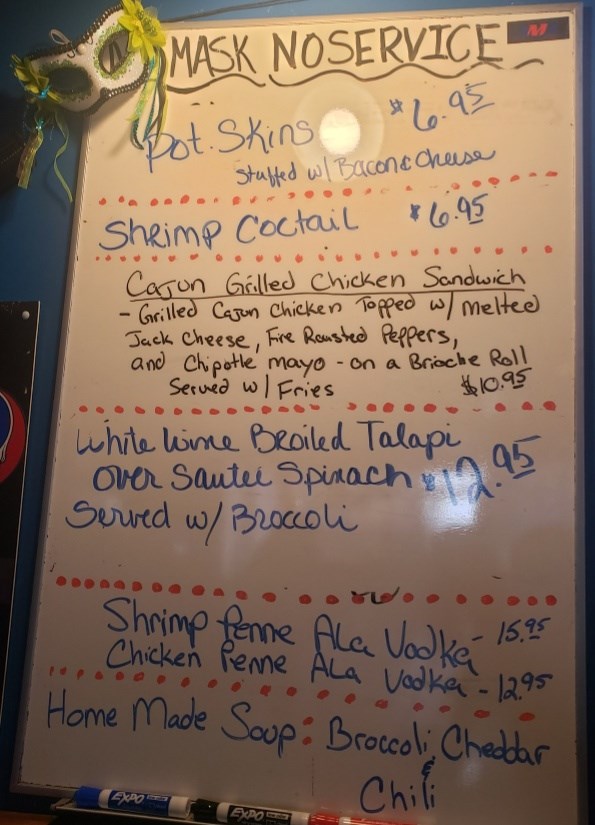 MASK NO SERVICE
M
Pot. Skins $6.95
Stuffed w/ Bacon & Cheese
Shrimp Coctail $6.95
Cajun Grilled Chicken Sandwich
- Grilled Cajun Chicken Topped w/ melted
Jack Cheese, Fire Rousted Peppers,
and Chipotle mayo - on a Brioche Roll
Served w/ Fries $10.95
White Wine Broiled Talapi
over Sautei Spinach $12.95
Served w/ Broccoli
Shrimp Penne Ala Vodka - 15.95
Chicken Penne ALA Vodka - 12.95
Home Made Soup: Broccoli Cheddar
&
Chili
EXPO EXPO